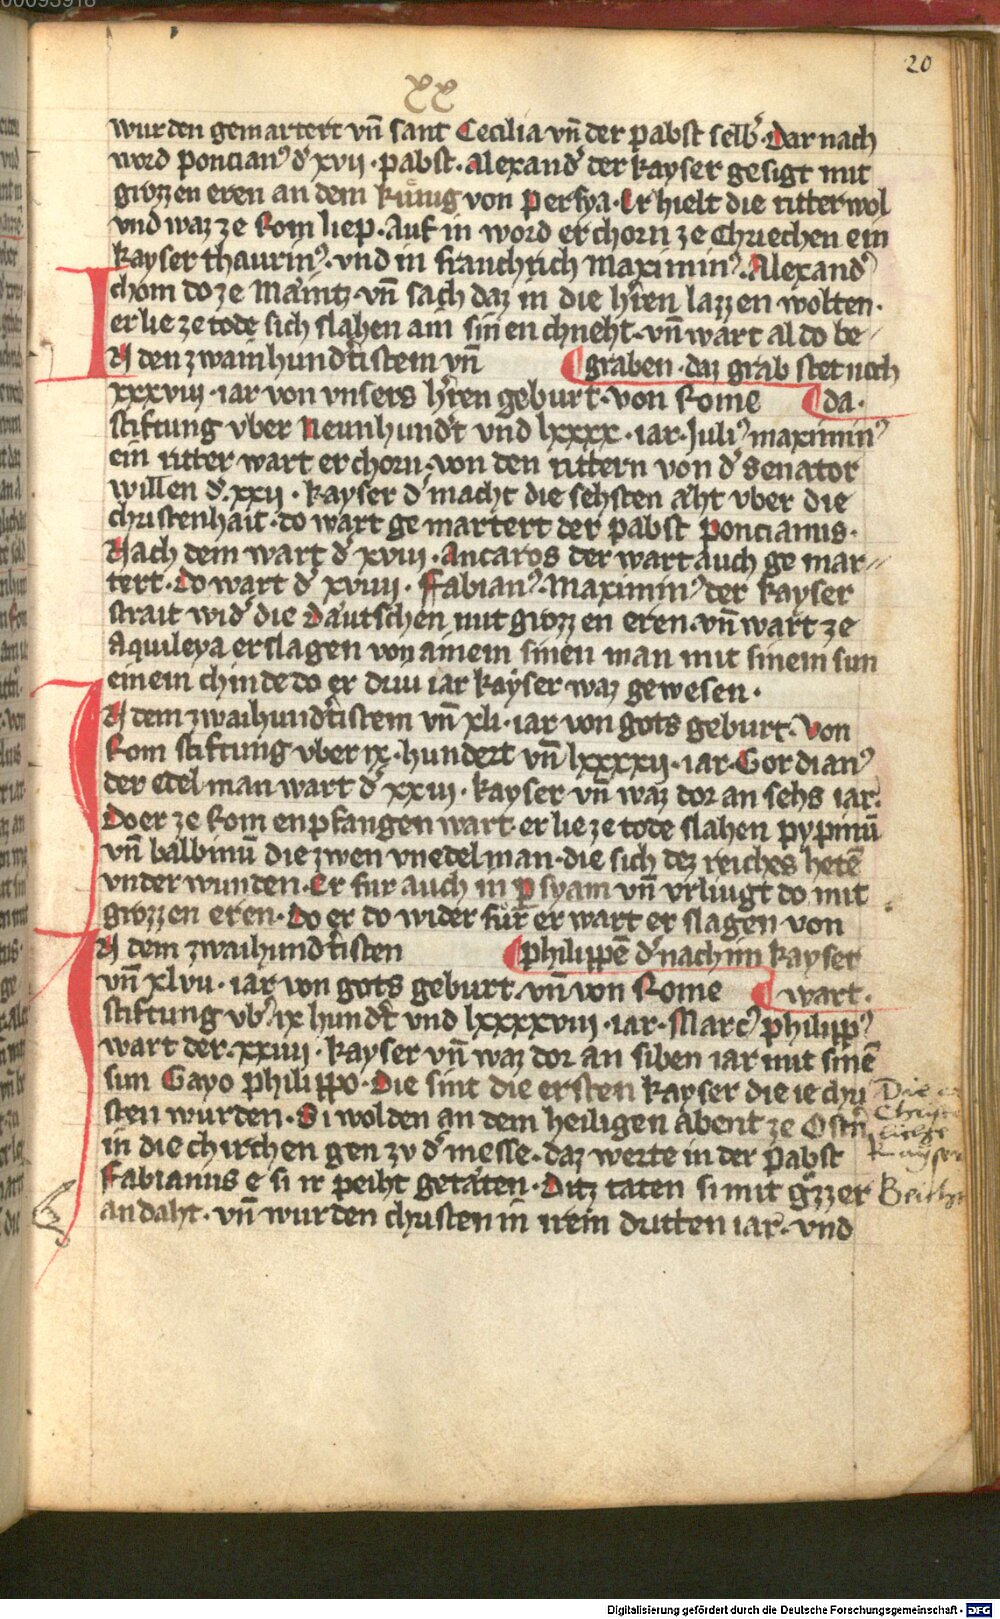 00093918
20
XX
wurden gemartert vn̄ sant Cecilia vn̄ der pabst selb̾ · Dar nach
word poncian᾽ d̾ xvii · pabst · Alexand̾ der kayser gesigt mit
grozzen eren an dem kuͤnig von persya · Er hielt die ritter wol
vnd waz ze Rom liep · Auf in word erchorn ze Chriechen ein
kayser thaurin᾽ · vnd in franchrich Maximin᾽ · Alexand̾
chom do ze Maintz · vn̄ sach daz in die h̾ren lazzen wolten ·
er lie ze tode sich slahen ain sinen chneht · vn̄ wart al do be-
IN den zwainhund̾tistem vn̄ graben · daz grab stet noch
xxxviii · iar von vnsers h̾ren geburt · von Rome da ·
stiftung vber Neunhund̾t vnd lxxxx · iar · Juli᾽ maximin᾽
ein ritter wart erchorn · von den rittern von d̾ senator
willen d̾ · xxii · kayser d̾ macht die sehsten aͤht vber die
christenhait · do wart gemartert der pabst poncianus ·
Nach dem wart d̾ xviii · Ancaros der wart auch gemar-
tert · Do wart d̾ xviiii · Fabian᾽ · Maximin᾽ der kayser
strait wid̾ die Daͤutschen mit grozzen eren · vn̄ wart ze
Aquileya erslagen von ainem sinen man mit sinem sun
einem chinde do er driu iar kayser waz gewesen ·
IN dem zwaihund̾tistem vn̄ xli · iar von gots geburt · Von
Rom stiftung vber ix · hundert vn̄ lxxxxii · iar · Gordian᾽
der edel man wart d̾ xxiii · kayser vn̄ waz dor an sehs iar ·
Do er ze Rom enpfangen wart · er lie ze tode slahen pypinū
vn̄ balbinū die zwen vnedel man · die sich dez reiches hetē
vnder wunden · Er fur auch in p̱syam vn̄ vrliugt do mit
grozzen eren · Do er do wider fuͤr er wart er slagen von
IN dem zwaihund̾tisten philippē d̾ nach im kayser
vn̄ xlvii · iar von gots geburt · vn̄ von Rome wart ·
stiftung vb̾ ix hund̾t vnd lxxxxviii · iar · Marc᾽ philipp᾽
wart der · xxiiii · kayser vn̄ waz dor an siben iar mit sinē
sun Gayo philippo · Die sint die ersten kayser die ie chri
sten wurden · Si wolden an dem heiligen abent ze Ost̾n
in die chirchen gen zv d̾ messe · daz werte in der pabst
Fabianus e si ir peiht getaͤten · Ditz taten si mit gͦzzer
andaht · vn̄ wurden christen in irem dritten iar · vnd
Kayser
Beicht
Digitalisierung gefördert durch die Deutsche Forschungsgemeinschaft · DFG